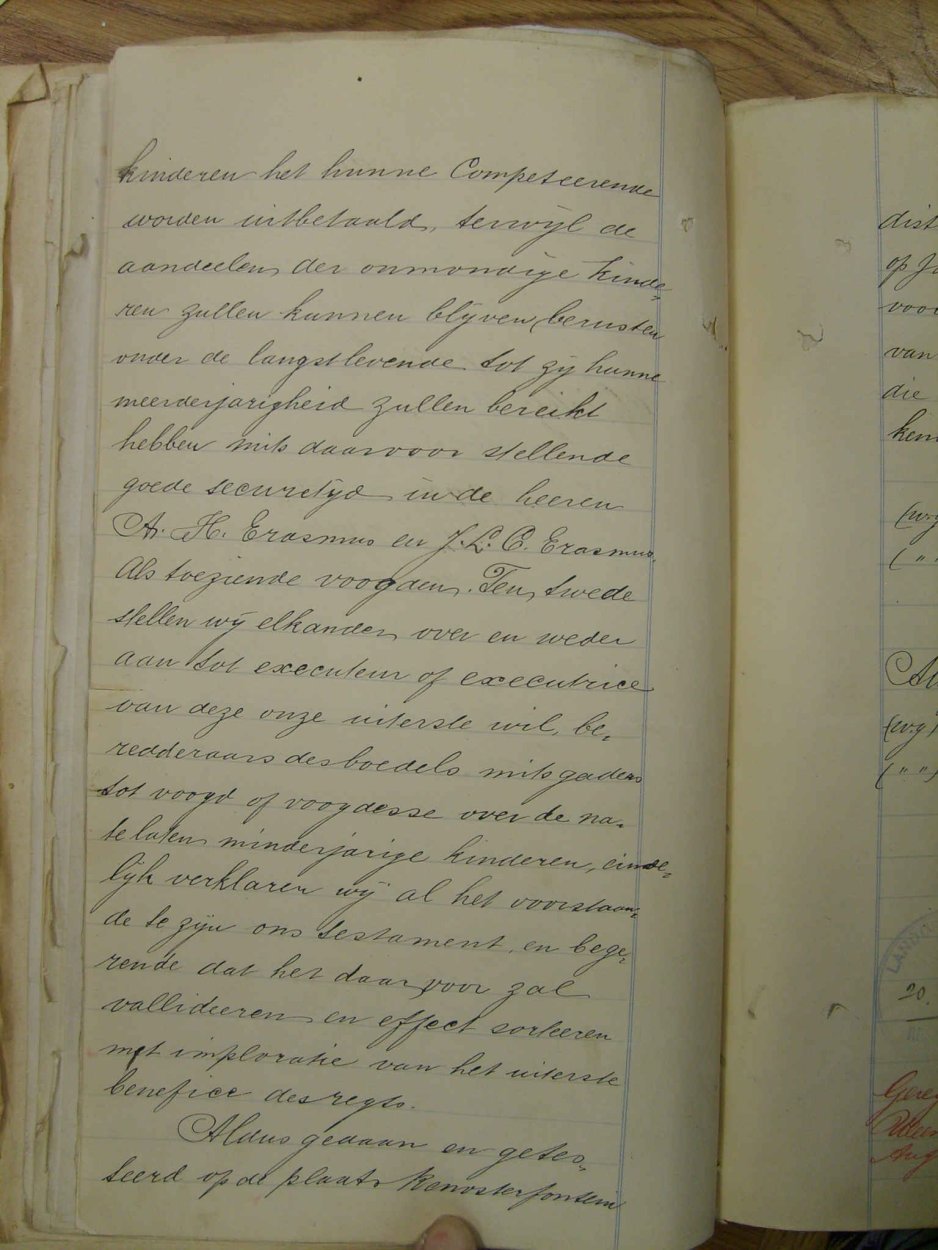 kinderen het hunne Competeerende
worden uitbetaald, terwijl de
aandeelen der onmondige kinde-
ren zullen kunnen blijven berusten
onder de langstlevende tot zij hunne
meerderjarigheid zullen bereikt
hebben mits daarvoor stellende
goede securetijd in de heeren
A. H. Erasmus en J. L. C. Erasmus.
Als toeziende voogden. Ten twede
stellen wij elkander over en weder
aan tot executeur of executrice
van deze onze uiterste wil, be-
redderaars des boedels mitsgaders
tot voogd of voogdesse over de na-
telaten minderjarige kinderen, einde-
lijk verklaren wij al het voorstaan-
de te zijn ons testament, en bege-
rende dat het daar voor zal
vallideeren en effect sorteeren
met imploratie van het uiterste
benefice des regts.
Aldus gedaan en getes-
teerd op de plaats Renosterfontein
dist
op
voor
van
die
ken
(w.g
( " "
(w.g)
( " ")
LANDD
20.
Aug